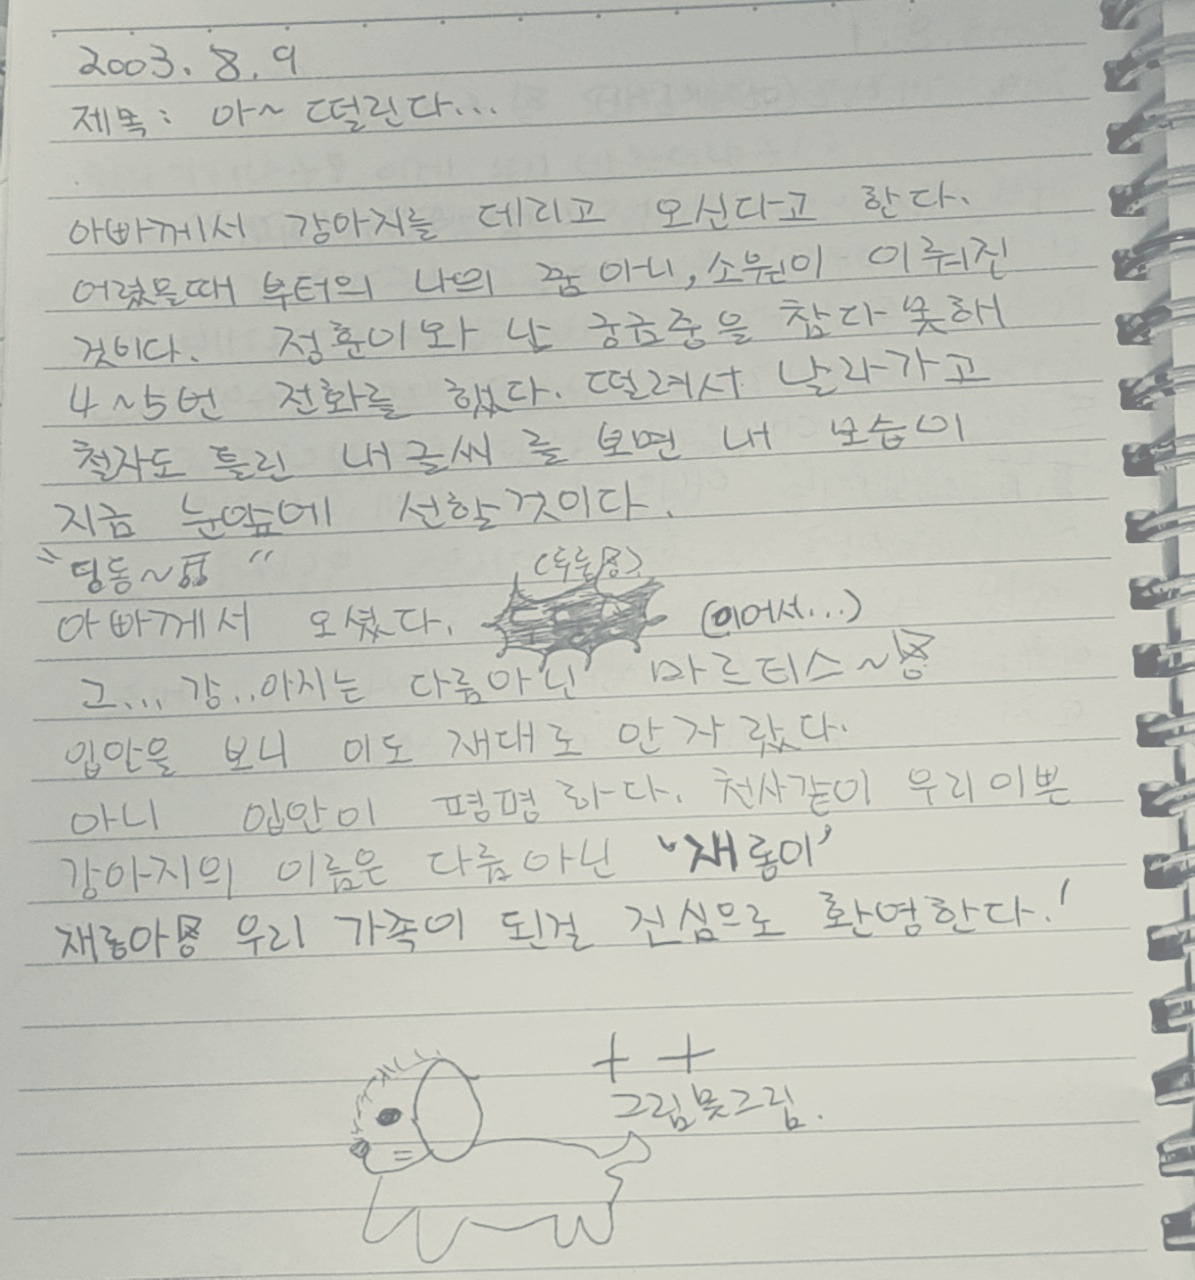 2003. 8. 9
제목: 아~ 떨린다...
아빠께서 강아지를 데리고 오신다고 한다.
어렸을때 부터의 나의 꿈 아니, 소원이 이뤄진
것이다. 정훈이와 난 궁금중을 참다못해
4~5번 전화를 했다. 떨려서 날라가고
철자도 틀린 내글씨 를 보면 내 모습이
지금 눈앞에 선할것이다.
"딩동~"
아빠께서 오셨다. (이어서...)
그... 강..아지는 다름아닌 마르티스~
입안을 보니 이도 재대로 안 자랐다.
아니 입안이 평평하다. 천사같이 우리이쁜
강아지의 이름은 다름아닌 '재롱이'
재롱아 우리 가족이 된걸 진심으로 환영한다!
그림못그림.